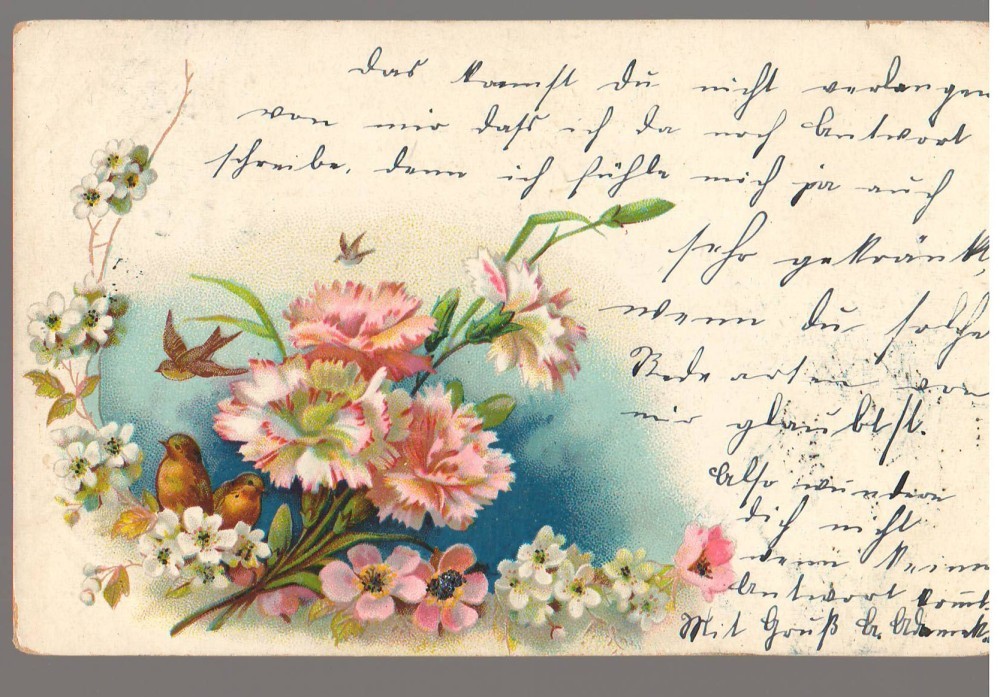 Das kannst du nicht verlangen
von mir dass ich da noch Antwort
schreibe, denn ich fühle mich ja auch
sehr gekränkt,
wenn du solche
Redearten von
mir glaubtst.
Also wundere
dich nicht
wenn keine
Antwort kommt
Mit Gruß A.